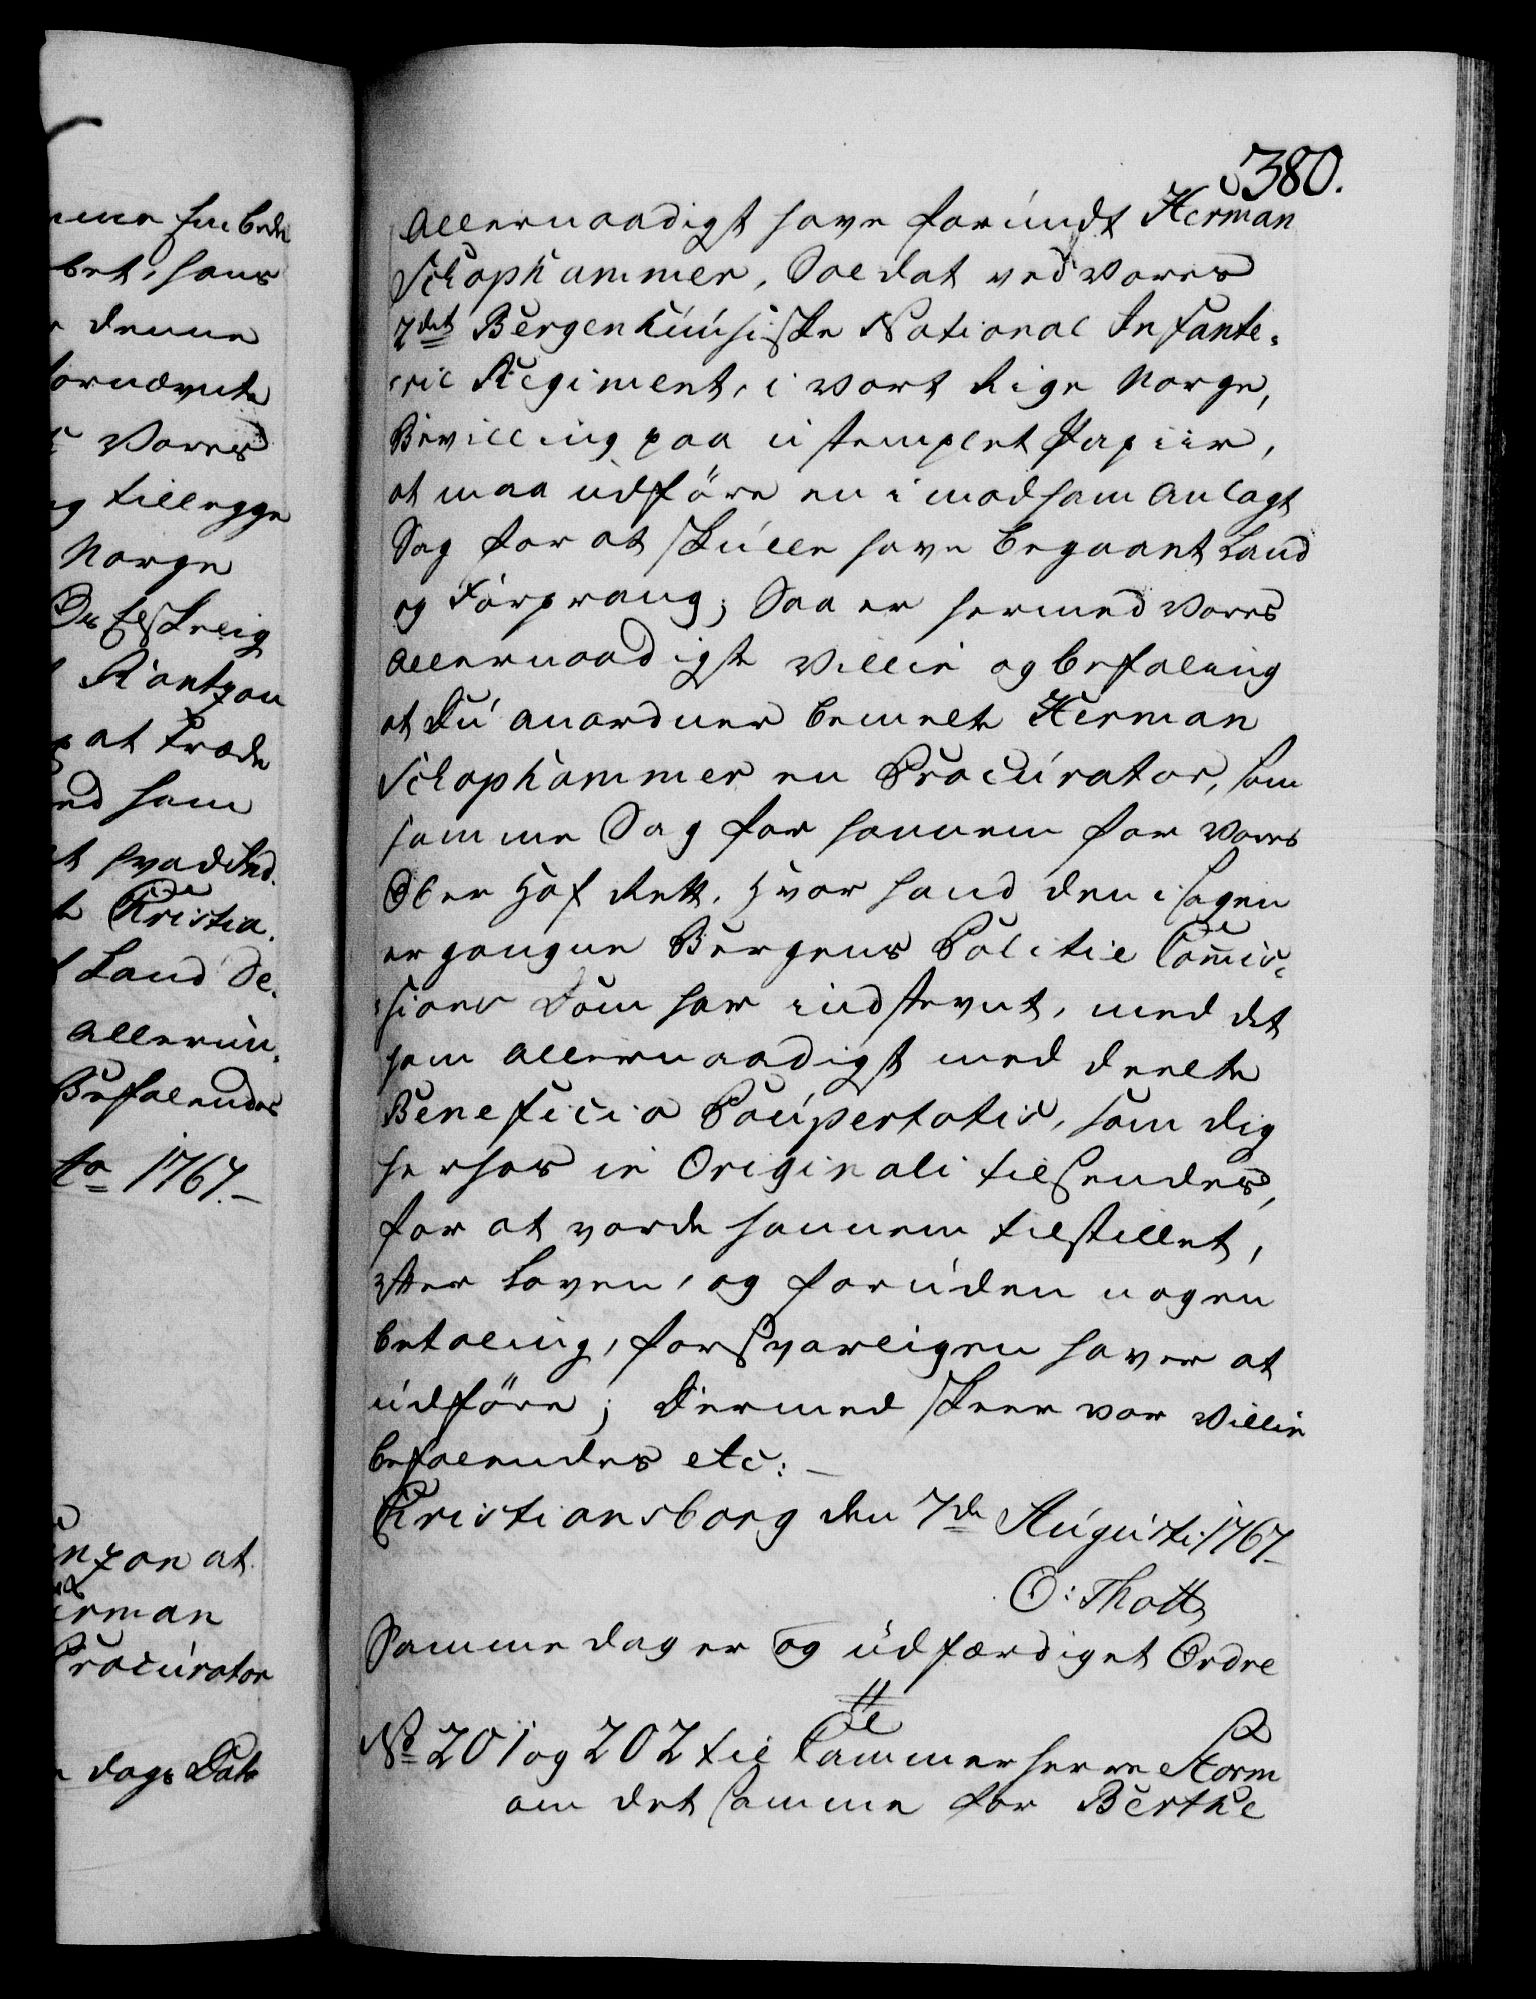 380.
Allernaadigst have forundt Herman
Schophammer, Soldat ved Vores
2det Bergenhuusiske National Infante-
rie Regiment, i vort Rige Norge,
Bevilling paa ustemplet Papiir,
at maa udføre en imod ham anlagt
Sag for at skulle have begaaet Land
og Forprang; Saa er hermed Vores
allernaadigste Villie og befaling
at Du anordner bemelte Herman
Schophammer en Procurator, som
samme Sag for hannem for Vores
Ober Hof Rett, hvor hand den i sagen
ergangne Bergens Politie Com̄is-
sions Dom har indstevnt, med det
ham allernaadigst meddeelte
Beneficio Paupertatis, som dig
herhos in Originali tilsendes,
for at vorde hannem tilstillet,
efter Loven, og foruden nogen
betaling, forsvarligen haver at
udføre; Dermed skeer vor Villie
befalendes etc:
Christiansborg den 7de Augusti 1767
O: Thott
Samme dag er og udfærdiget Ordre
No 201 og 202 til Cammerherre Storm
om det samme for Berthe
bet, hans
denne
fornævnte
Vores
og tillegge
Norge
Rantzou
at træde
ed ham
Christia-
Land Se-
allerun-
Befalendes
1767.
nzon at
erman
Procurator
dags Dato